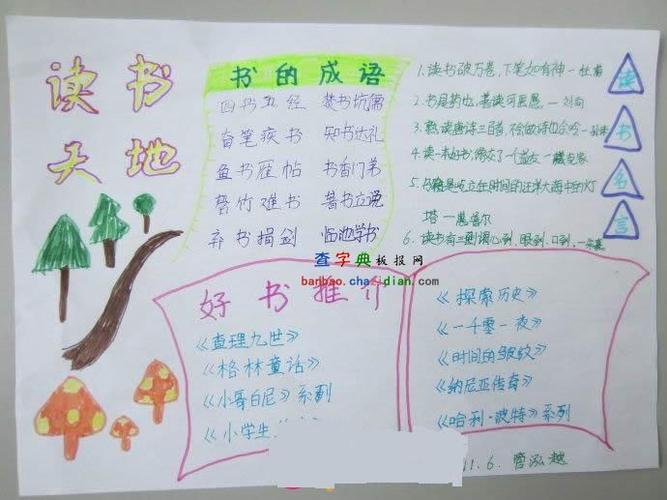 读书
天地
书的成语
四书五经 焚书坑儒
奋笔疾书 知书达礼
鱼书雁帖 书香门第
罄竹难书 著书立说
弃书捐剑 临池学书
1. 读书破万卷,下笔如有神一杜甫
2. 书犹药也,善读可医愚一刘向
3. 熟读唐诗三百首,不会做诗也会吟一孙洙
4. 读一本好书,等于交了一个益友一臧克家
5. 书籍是屹立在时间的汪洋大海中的灯
塔一惠普尔
6. 读书有三到谓心到、眼到、口到、一朱熹
读
书
名
言
查字典板报网
banbao.chazidian.com
好书推介
《查理九世》
《格林童话》
《小哥白尼》系列
《小学生
《探索历史》
《一千零一夜》
《时间的皱纹》
《纳尼亚传奇》
《哈利·波特》系列
11.6. 曾泓越